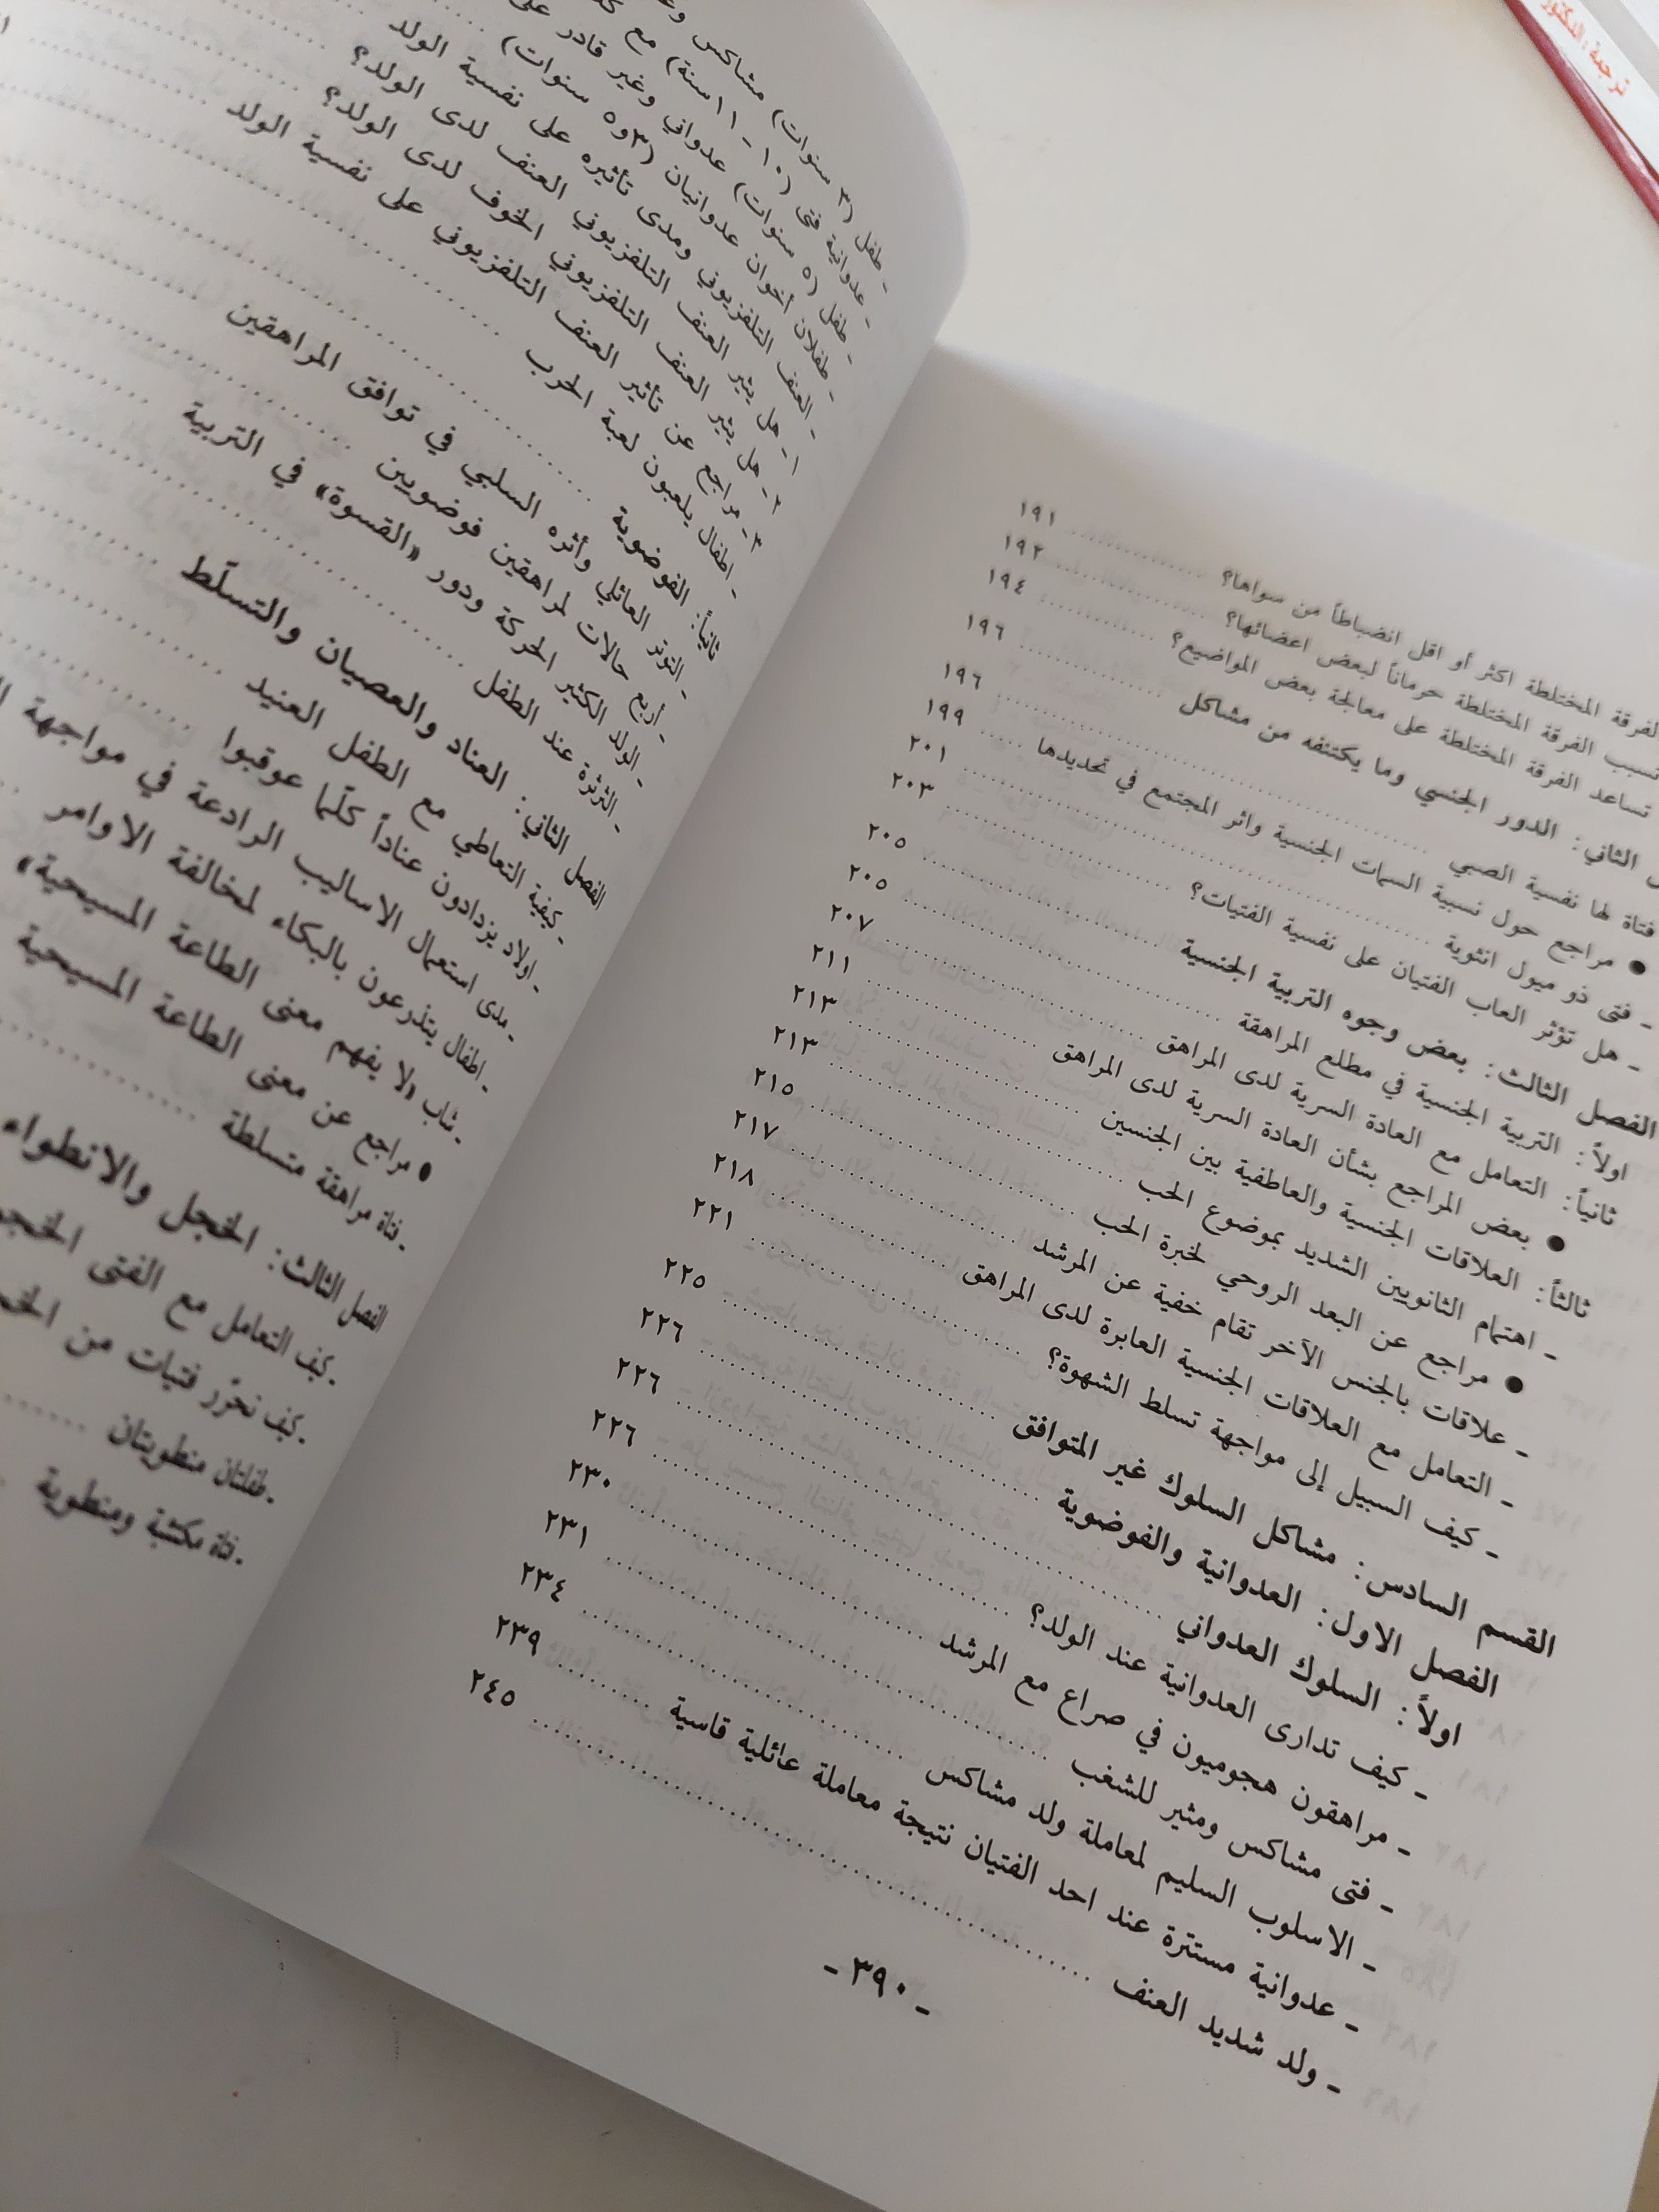 الفرقة المختلطة اكثر أو اقل انضباطاً من سواها؟ ................ ١٩١
تسبب الفرقة المختلطة حرماناً لبعض اعضائها؟ ................ ١٩٢
تساعد الفرقة المختلطة على معالجة بعض المواضيع؟ ................ ١٩٤
الثاني: الدور الجنسي وما يكتنفه من مشاكل ................ ١٩٦
فتاة لها نفسية الصبي ................ ١٩٦
● مراجع حول نسبية السمات الجنسية واثر المجتمع في تحديدها ..... ١٩٩
- فتى ذو ميول انثوية ................ ٢٠١
- هل تؤثر العاب الفتيان على نفسية الفتيات؟ ................ ٢٠٣
الفصل الثالث: بعض وجوه التربية الجنسية ................ ٢٠٥
اولاً: التربية الجنسية في مطلع المراهقة ................ ٢٠٥
ثانياً: التعامل مع العادة السرية لدى المراهق ................ ٢٠٧
● بعض المراجع بشأن العادة السرية لدى المراهق ................ ٢١١
ثالثاً: العلاقات الجنسية والعاطفية بين الجنسين ................ ٢١٣
- اهتمام الثانويين الشديد بموضوع الحب ................ ٢١٣
● مراجع عن البعد الروحي لخبرة الحب ................ ٢١٥
- علاقات بالجنس الآخر تقام خفية عن المرشد ................ ٢١٧
- التعامل مع العلاقات الجنسية العابرة لدى المراهق ................ ٢١٨
- كيف السبيل إلى مواجهة تسلط الشهوة؟ ................ ٢٢١
القسم السادس: مشاكل السلوك غير المتوافق ................ ٢٢٥
الفصل الاول: العدوانية والفوضوية ................ ٢٢٦
اولاً: السلوك العدواني ................ ٢٢٦
- كيف تدارى العدوانية عند الولد؟ ................ ٢٢٦
- مراهقون هجوميون في صراع مع المرشد ................ ٢٣٠
- فتى مشاكس ومثير للشغب ................ ٢٣١
- الاسلوب السليم لمعاملة ولد مشاكس ................ ٢٣٤
- عدوانية مستترة عند احد الفتيان نتيجة معاملة عائلية قاسية ........ ٢٣٩
- ولد شديد العنف ................ ٢٤٥
- ٣٩٠ -
- طفل (٣ سنوات) مشاكس
- عدوانية فتى (١٠ - ١١ سنة) مع
- طفل (٥ سنوات) عدواني وغير قادر على
- طفلان أخوان عدوانيان (٣ و٥ سنوات)
- العنف التلفزيوني ومدى تأثيره على نفسية الولد
١- هل يثير العنف التلفزيوني العنف لدى الولد؟
٢- هل يثير العنف التلفزيوني الخوف لدى الولد؟
٣- مراجع عن تأثير العنف التلفزيوني على نفسية الولد
- اطفال يلعبون لعبة الحرب
ثانياً: الفوضوية
- التوتر العائلي وأثره السلبي في توافق المراهقين
- أربع حالات لمراهقين فوضويين
- الولد الكثير الحركة ودور «القسوة» في التربية
- الثرثرة عند الطفل
الفصل الثاني: العناد والعصيان والتسلّط
- كيفية التعاطي مع الطفل العنيد
- اولاد يزدادون عناداً كلّما عوقبوا
- مدى استعمال الاساليب الرادعة في مواجهة
- اطفال يتذرعون بالبكاء لمخالفة الاوامر
- شاب «لا يفهم معنى الطاعة المسيحية»
● مراجع عن معنى الطاعة المسيحية
- فتاة مراهقة متسلطة
الفصل الثالث: الخجل والانطواء
- كيف التعامل مع الفتى
- كيف نحرّر فتيات من
- طفلتان منطويتان
- فتاة مكتئبة ومنطوية
ترجمة: الدكتور